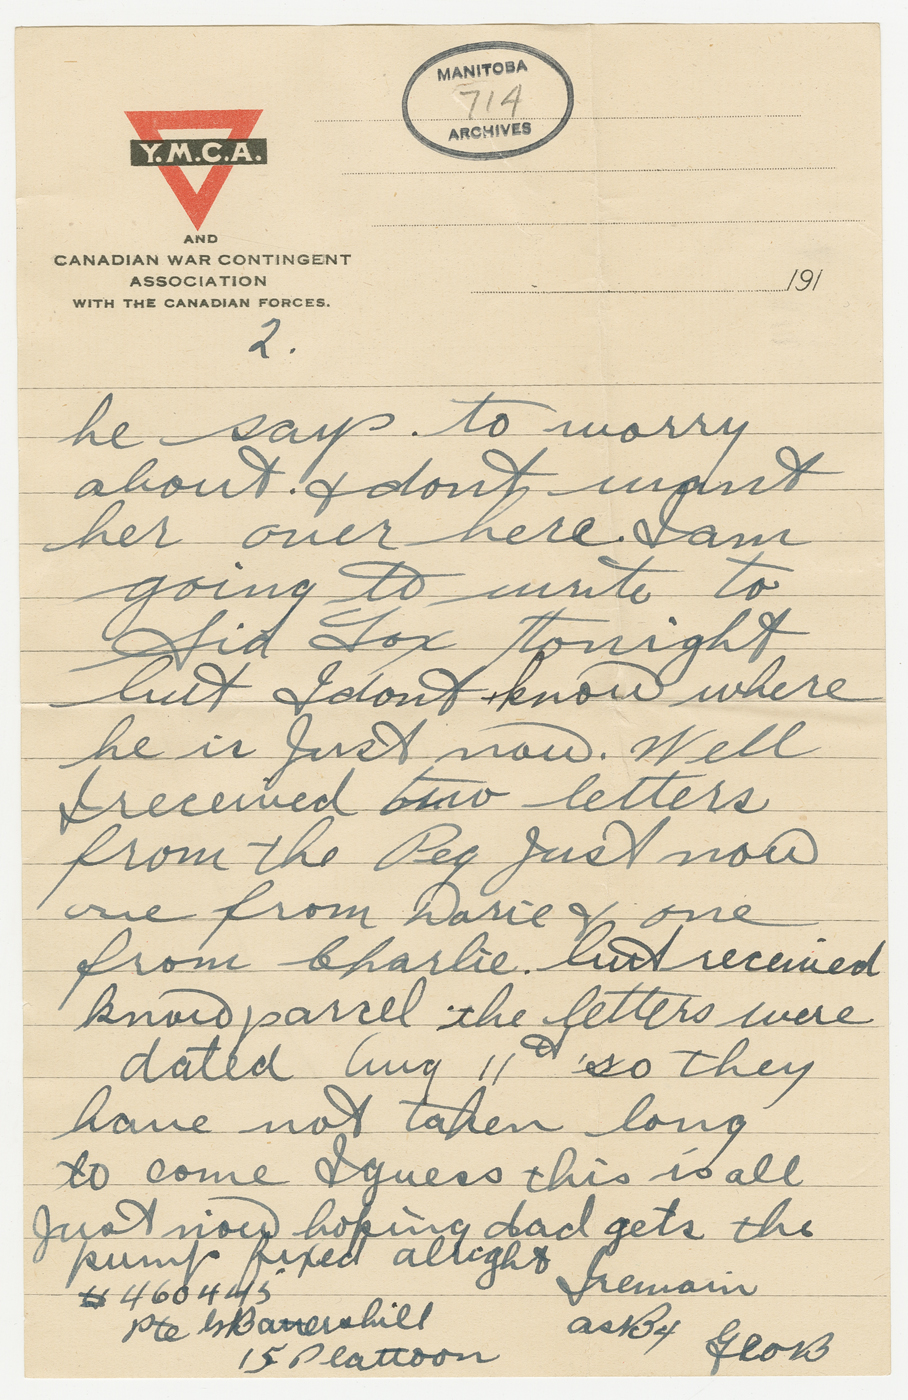 MANITOBA
714
ARCHIVES
Y.M.C.A.
AND
CANADIAN WAR CONTINGENT
ASSOCIATION
WITH THE CANADIAN FORCES.
191
2.
he says. to worry
about. & dont want
her over here. I am
going to write to
Sid Fox tonight
but I dont know where
he is Just now. Well
I received two letters
from the Peg Just now
one from Darie & one
from Charlie. but received
know parcel the letters were
dated Aug 11th so they
have not taken long
to come I guess this is all
Just now hoping dad gets the
pump fixed alright
I remain
# 460445
Pte G Battershill
as B4
Geo B
15 Plattoon